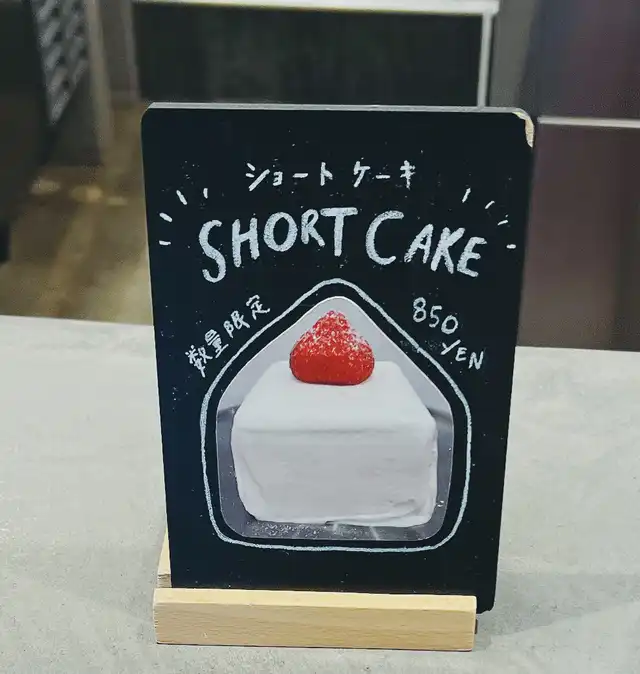 ショートケーキ
SHORT CAKE
数量限定
850
YEN